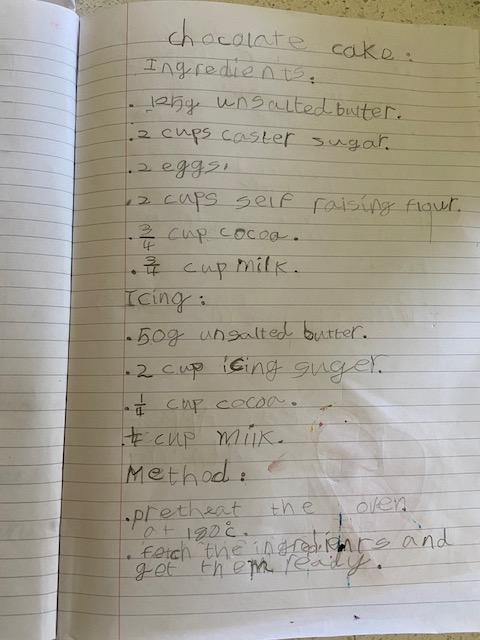 chocolate cake:
Ingredients:
. 125g unsalted butter.
.2 cups caster sugar.
.2 eggs.
.2 cups self raising flour.
.3/4 cup cocoa.
.3/4 cup milk.
Icing:
.50g unsalted butter.
.2 cup icing suger.
.1/4 cup cocoa.
cup milk.
Method:
.pretheat the oven
at 180°c.
.fetch the ingredients and
get them ready.